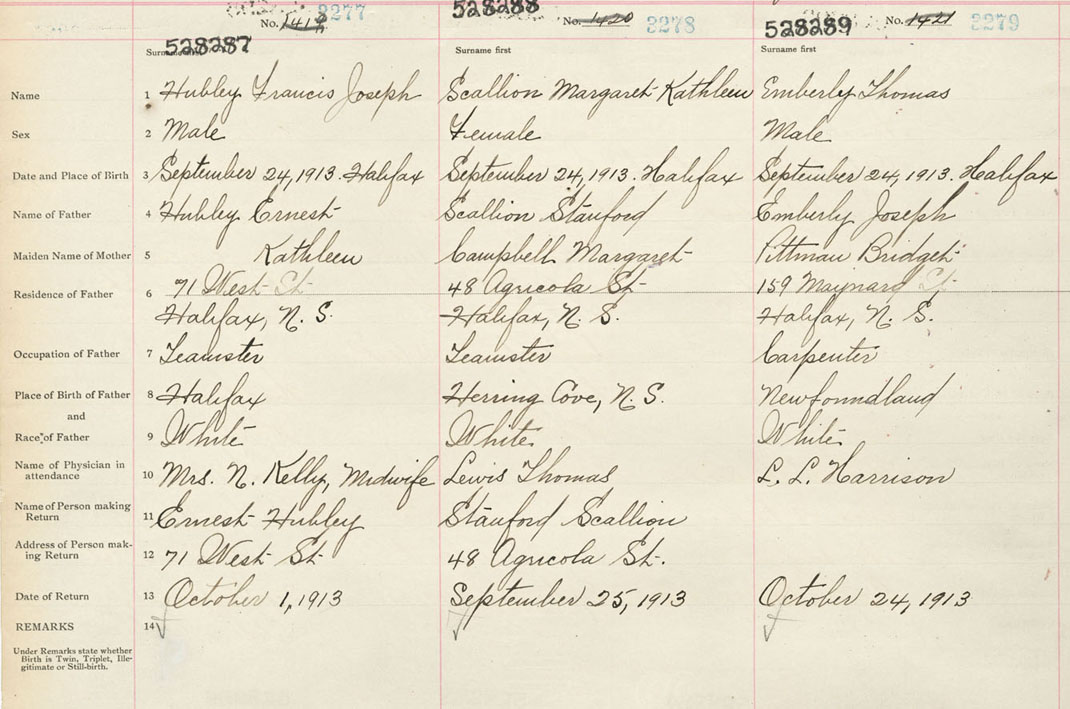 No. 1418 3277 528288 No. 1420 3278 528289 No. 1421 3279
528287
Surname first Surname first Surname first
Name 1 Hubley Francis Joseph Scallion Margaret Kathleen Emberly Thomas
Sex 2 Male Female Male
Date and Place of Birth 3 September 24, 1913. Halifax September 24, 1913. Halifax September 24, 1913. Halifax
Name of Father 4 Hubley Ernest Scallion Stanford Emberly Joseph
Maiden Name of Mother 5 Kathleen Campbell Margaret Pittman Bridget
Residence of Father 6 71 West St 48 Agricola St 159 Maynard St
Halifax, N. S. Halifax, N. S. Halifax, N. S.
Occupation of Father 7 Teamster Teamster Carpenter
Place of Birth of Father 8 Halifax Herring Cove, N. S. Newfoundland
and
Race of Father 9 White White White
Name of Physician in
attendance 10 Mrs. N. Kelly, Midwife Lewis Thomas L. L. Harrison
Name of Person making
Return 11 Ernest Hubley Stanford Scallion
Address of Person mak-
ing Return 12 71 West St 48 Agricola St.
Date of Return 13 October 1, 1913 September 25, 1913 October 24, 1913
REMARKS 14
Under Remarks state whether
Birth is Twin, Triplet, Ille-
gitimate or Still-birth.